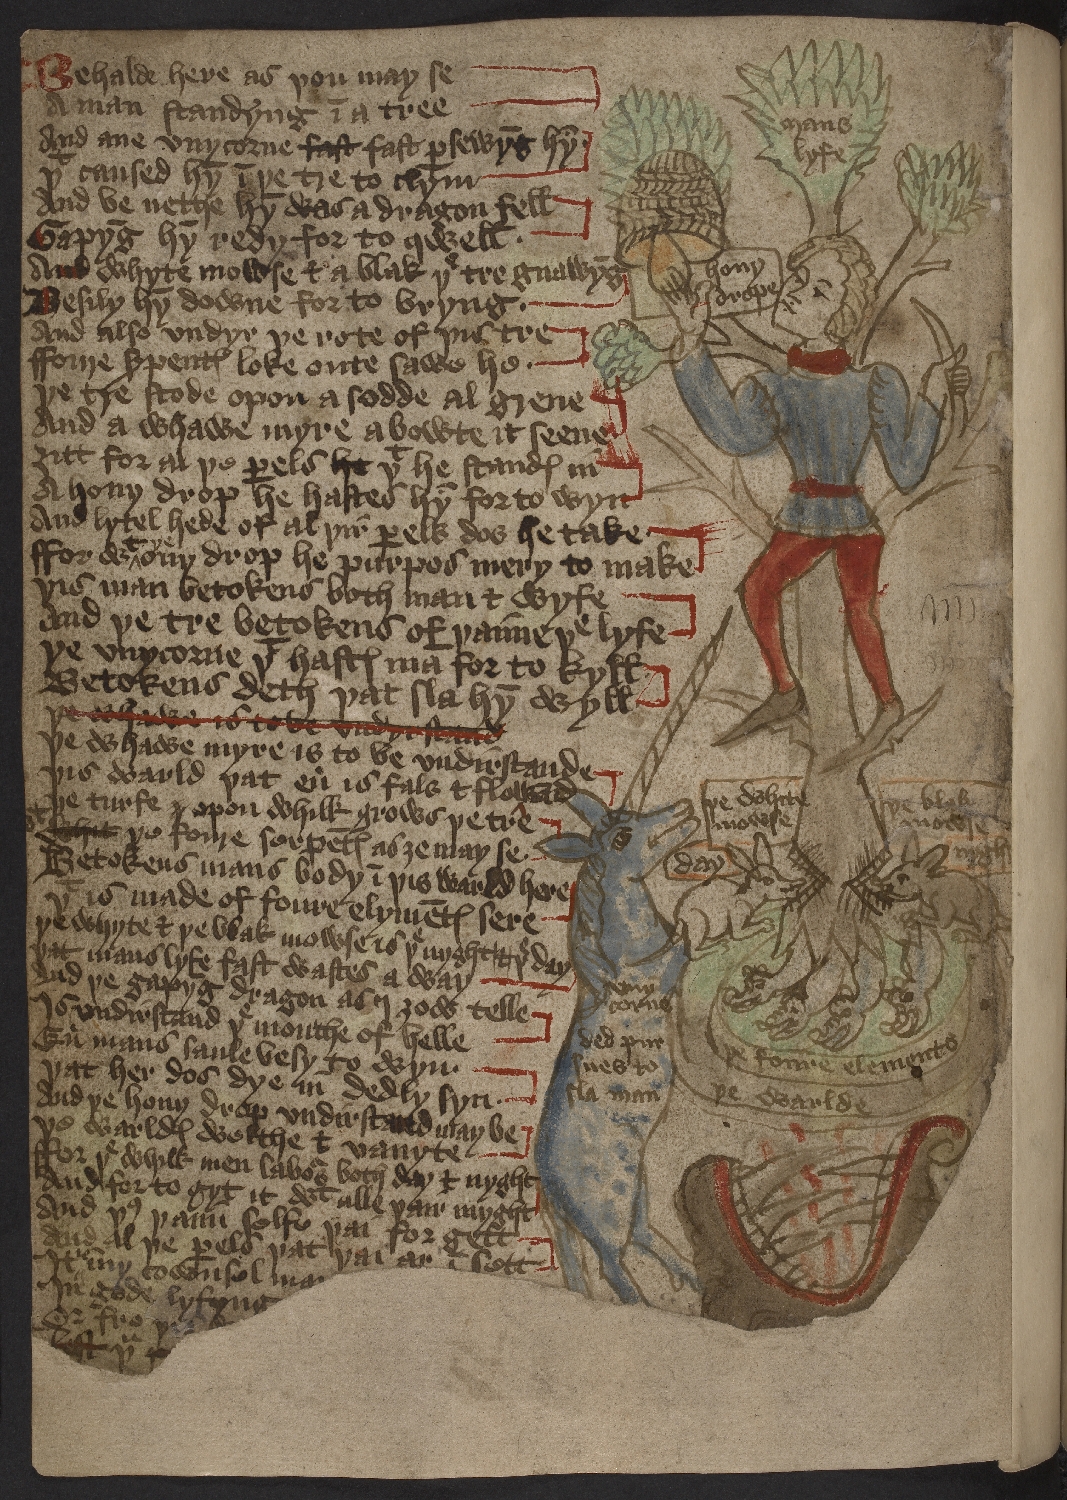 Behalde here as you may se
A man standyng ī a tree
And ane vnycorne fast fast ꝑsewyg hȳ
yͭ caused hȳ ī ye tre to clym
And be nethe hȳ was a dragon fell
Gapyg hȳ redy for to qwell
And whyte mowse & a blak yͤ tre gnawyg
Besily hȳ downe for to bryng
And also vndyr ye rote of yis tre
ffowre serpentꝭ loke oute sawe he
ye tre stode opon a sodde al grene
And a whawe myre abowte it seene
ȝitt for al ye ꝑels he yͭ he standꝭ in
A hony drop he hastes hȳ for to wyn
And lytel hede of al yir ꝑels dos he take
ffor wͭ ye ony drop he purpos mery to make
yis man betokens both man & wyfe
And ye tre betokens of yaime yͤ lyfe
ye vnycorne yͭ hastꝭ ma for to kyll
Betokens deth yat sla hȳ wyll
ye whawe is to be vndyrstand
ye whawe myre is to be vndirstande
yis warld yat eū is fals &
ye turfe opon whilk grows ye tre
ye fowre serpētꝭ as ȝe may se
Betokens mans body ī yis warld here
yͭ is made of foure elymētꝭ sere
ye whyte & ye blak mowse is yͤ nyght & yͤ day
yat mans lyfe fast wastes a way
And ye gapyg dragon as I ȝow telle
Is vndirstand yͤ mouthe of helle
Eū mans saule besy to wyn
yat her dos dye in dedly syn
And ye hony drop vndirstand may be
ye warldꝭ welthe & vanyte
ffor yͤ whilk men labos both day & nyght
And for to gyt it wͭ alle yair myght
And yꝰ yaim selfe yai for gett
And al ye ꝑels yat yai ar ī sett
It my cownsel
In gode lyfyng
Or
lest yͧ
mans
lyfe
hony
drope
ye white
mowse
day
ye blak
mowse
nyght
vny
corne
ded pur
sues to
sla man
ye fowre elements
ye warlde